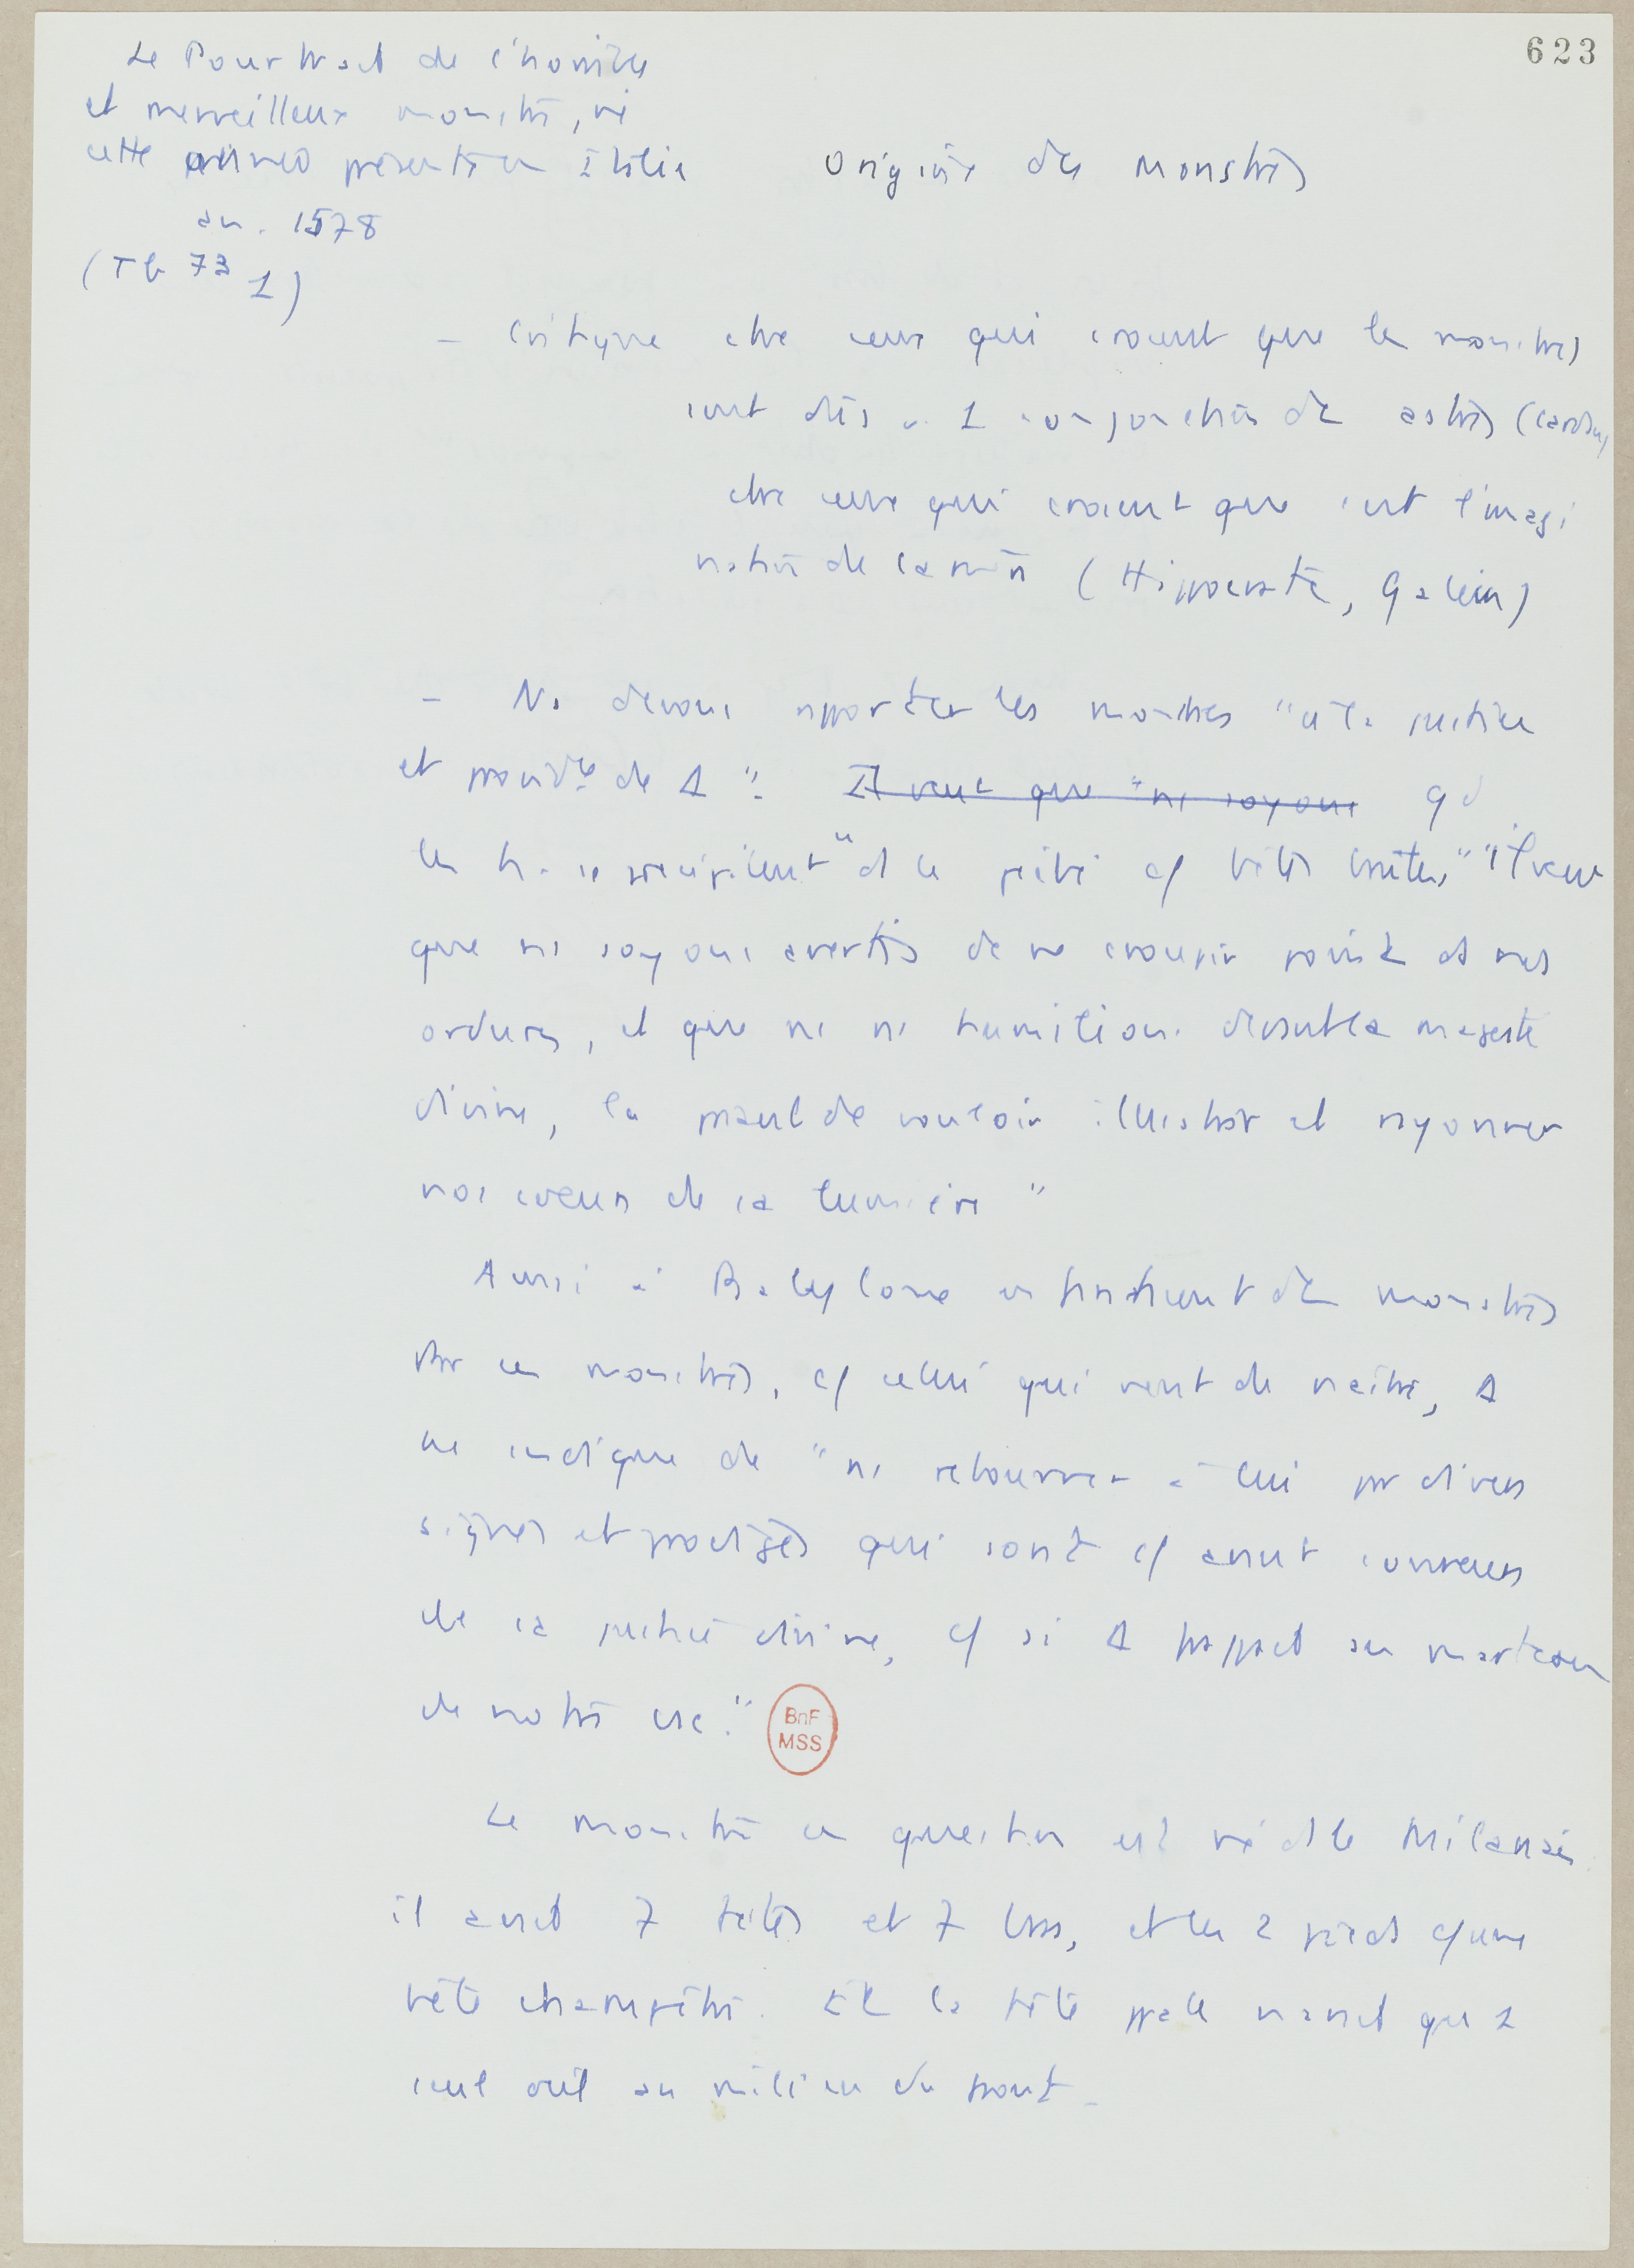 623
Le Pourtraict de l'horrible
et merveilleux monstre, né
cette année présente en Italie
an. 1578
(Tb 73 1)
Origine des Monstres
– Critique ctre ceux qui croient que les monstres
sont dûs à 1 conjonction des astres (Cardan)
ctre ceux qui croient que c'est l'imagi
nation de la mère (Hippocrate, Galien)
– Ns devons rapporter les monstres "à la justice
et provid.ce de Δ". Il veut que "ns soyons
les h. se précipitent "ds le péché c/ bêtes brutes" "il veut
que ns soyons avertis de ne croupir point ds nos
ordures, et que ns ns humilions devant la majesté
divine, la priant de vouloir illustrer et rayonner
nos cœurs de sa lumière"
Aussi à Babylone naissaient des monstres
Par ces monstres, c/ celui qui vient de naître, Δ
ns indique de "ns retourner à lui par divers
signes et prodiges qui sont c/ avant coureurs
de sa justice divine, c/ si Δ frappait au marteau
de notre
BnF
MSS
Le monstre en question est né ds le Milanais
il avait 7 têtes et 7 bras, et les 2 pieds c/ une
bête champêtre. Et la tête ppale n'avait qu'1
seul œil au milieu du front.